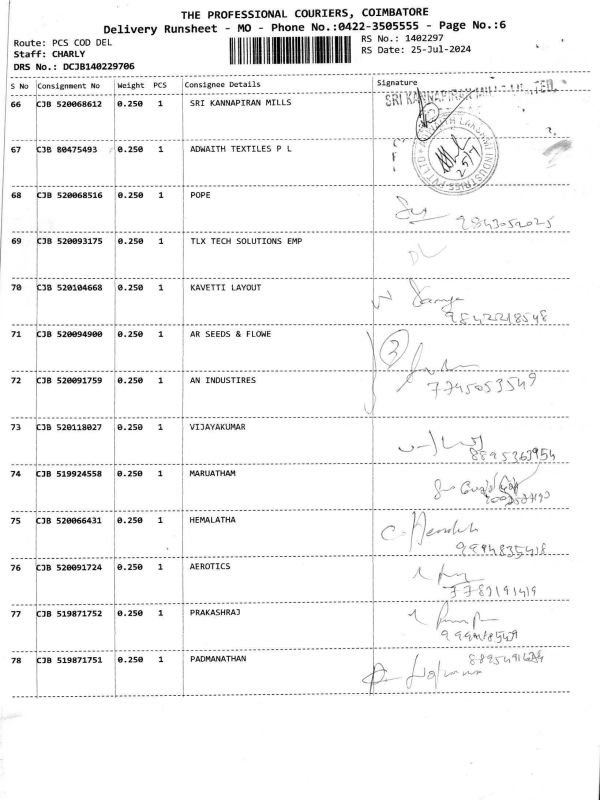 THE PROFESSIONAL COURIERS, COIMBATORE
Delivery Runsheet - MO - Phone No.:0422-3505555 - Page No.:6
Route: PCS COD DEL
RS No.: 1402297
Staff: CHARLY
RS Date: 25-Jul-2024
DRS No.: DCJB140229706
S No Consignment No Weight PCS Consignee Details Signature
66 CJB 520068612 0.250 1 SRI KANNAPIRAN MILLS
SRI KANNAPIRAN MILLS LIMITED.
67 CJB 80475493 0.250 1 ADWAITH TEXTILES P L
25/7
68 CJB 520068516 0.250 1 POPE
9843052025
69 CJB 520093175 0.250 1 TLX TECH SOLUTIONS EMP
DL
70 CJB 520104668 0.250 1 KAVETTI LAYOUT
9842218548
71 CJB 520094900 0.250 1 AR SEEDS & FLOWE
2
72 CJB 520091759 0.250 1 AN INDUSTIRES
7745053549
73 CJB 520118027 0.250 1 VIJAYAKUMAR
8895363954
74 CJB 519924558 0.250 1 MARUATHAM
75 CJB 520066431 0.250 1 HEMALATHA
9994835418
76 CJB 520091724 0.250 1 AEROTICS
7782191419
77 CJB 519871752 0.250 1 PRAKASHRAJ
78 CJB 519871751 0.250 1 PADMANATHAN